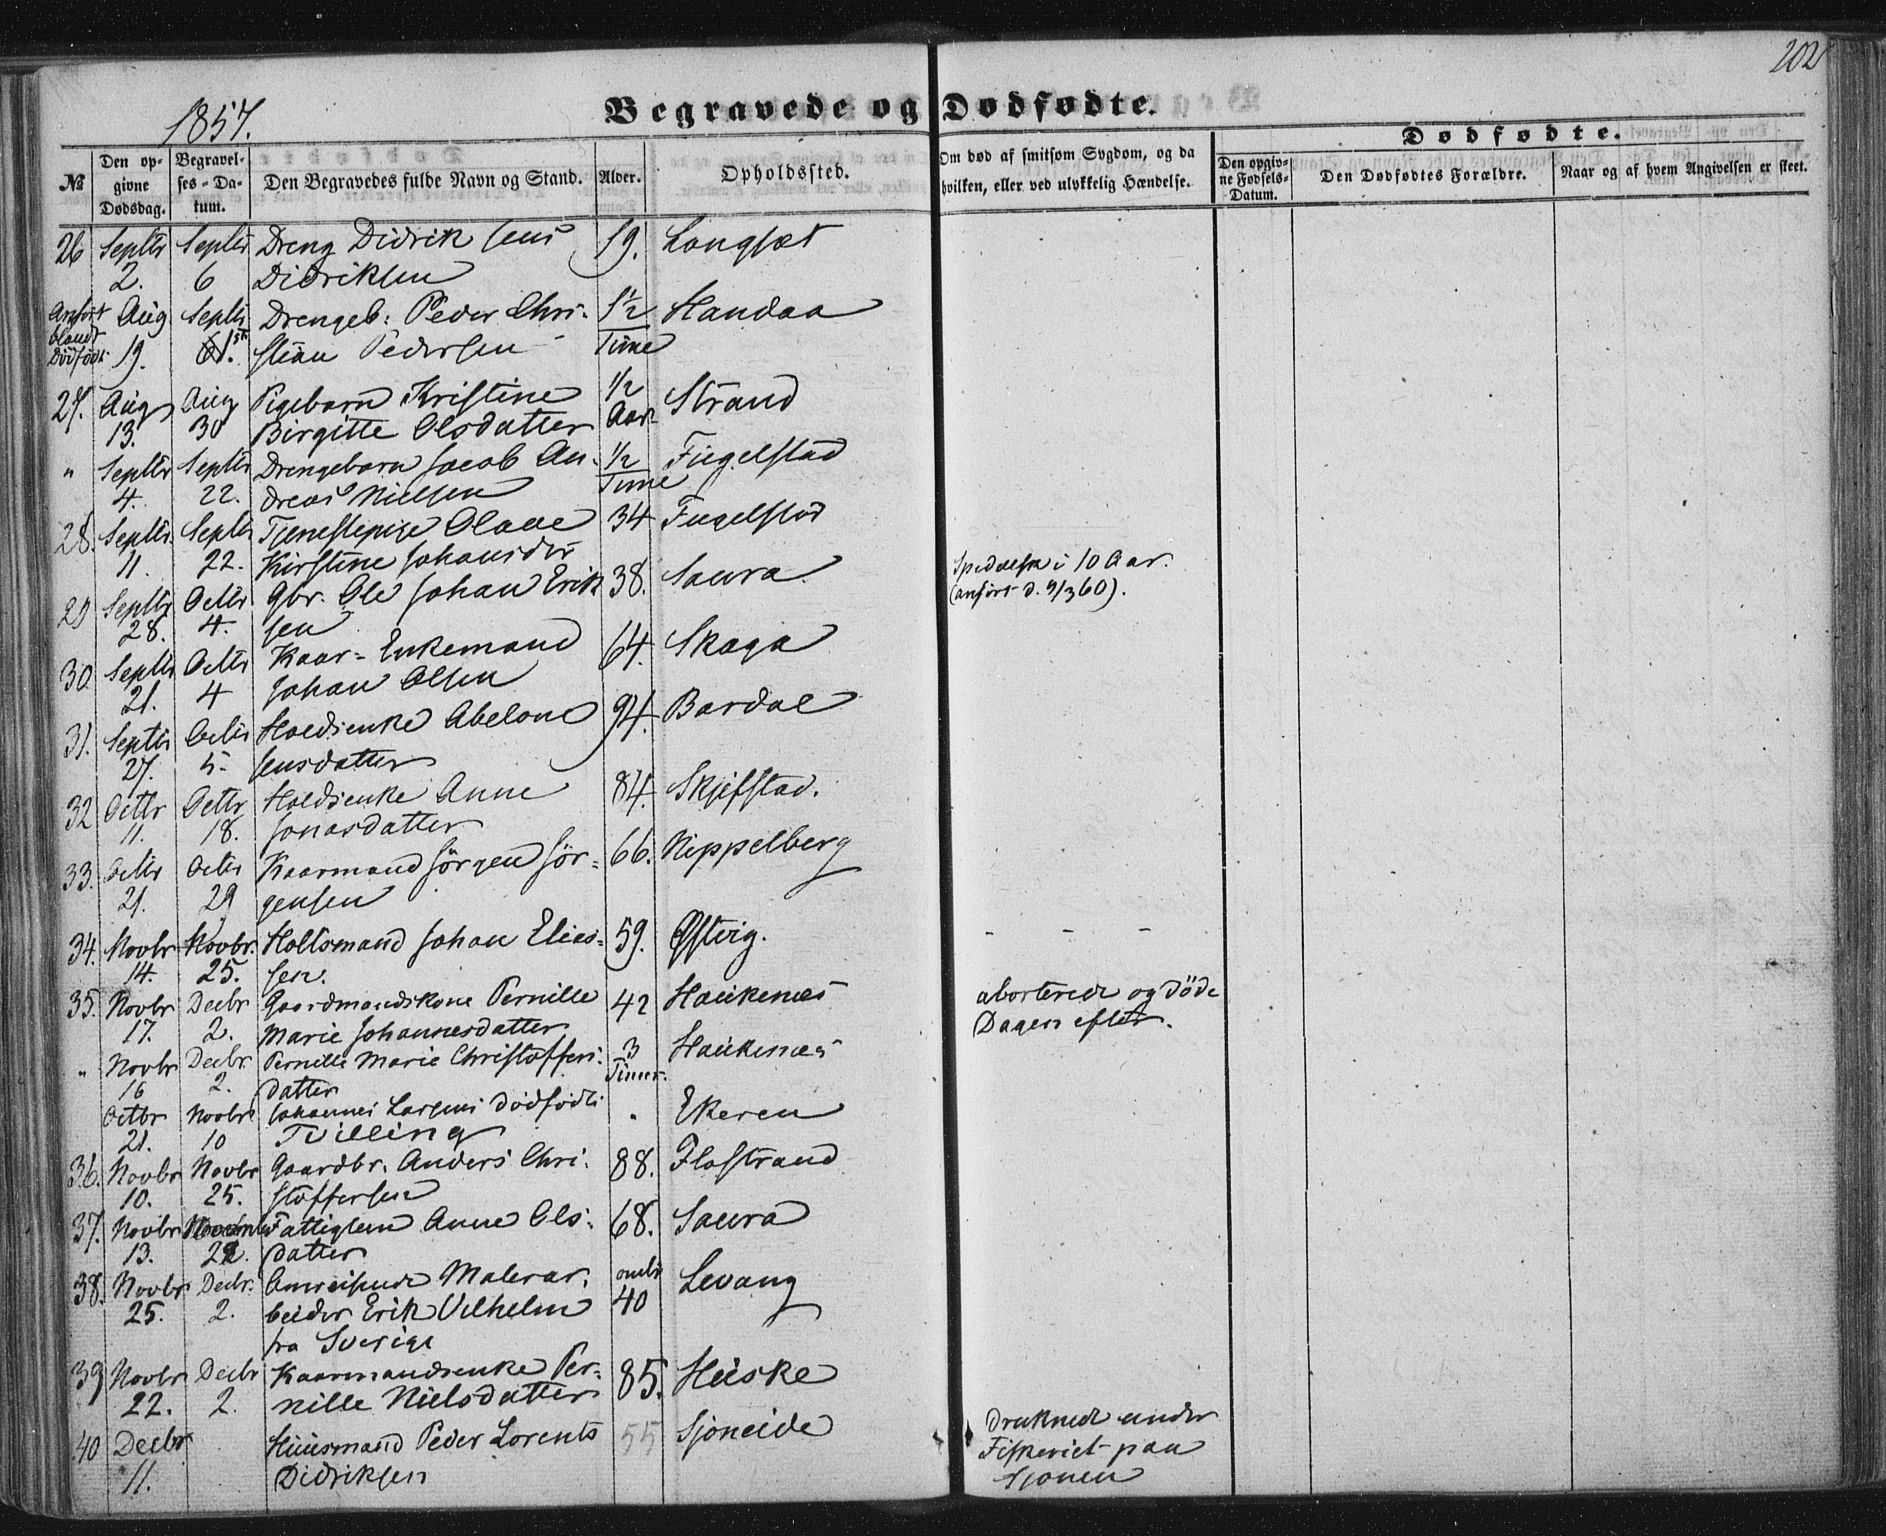 202
1857.
Begravede og Dødfødte.
Dødfødte.
№ Den op- Begravel- Den Begravedes fulde Navn og Stand. Alder. Opholdssted. Om død af smitsom Sygdom, og da Den opgiv- Den Dødfødtes Forældre. Naar og af hvem Angivelsen er skeet.
givne ses-Da- hvilken, eller ved ulykkelig Hændelse. ne Fødsels-
Dødsdag. tum. Datum.
26 Septbr Septbr Dreng Didrik Jens 19. Langset
2. 6 Didriksen
Anført Aug Septbr Drengeb: Peder Chri- 1/2 Handaa
blandt
Dødfødte 19. stian Pedersen Time
27. Aug Aug Pigebarn Kristine 1/2 Strand
13. 30 Birgitte Olsdatter Aar
" Septbr Septbr Drengebarn Jacob An- 1/2 Fugelstad
4. 22. dreas Nielsen Time
28. Septbr. Septbr Tjenestepige Olave 34 Fugelstad
11. 22. Kirstine Johansdtr
29 Septbr Octbr Gbr. Ole Johan Erik 38. Saura. Spedalsk i 10 Aar.
28. 4. sen (anført d. 9/3 60).
30 Septbr Octbr Kaar-Enkemand 64. Skaga
21. 4 Johan Olsen
31. Septbr Octbr Holdsenke Abelone 94. Bardal
27. 5. Jensdatter
32 Octbr Octbr Holdsenke Anne 84. Skjefstad.
11. 18. Jonasdatter
33. Octbr Octbr Kaarmand Jörgen Jör- 66. Nippelberg
21. 29 gensen
34. Novbr Novbr. Holtsmand Johan Elias- 59. Østvig. - - -
14. 25. sen.
35. Novbr Decbr Gaardmandskone Pernille 42 Haukenæs aborterede og døde
17. 2. Marie Johannesdatter Dagen efter.
" Novbr Decbr. Pernille Marie Christoffers- 3 Haukenæs
16 2. datter Timer.
Octbr Novbr Johannes Larsens dødfødte " Ekeren
21. 10 Tvilling
36. Novbr Novbr Gaardbr. Anders Chri- 88. Flostrand
10. 25. stoffersen
37. Novbr Fattiglem Anne Ols- 68. Saura
13. datter
38. Novbr Decbr. Omreisende Malerar- omtr Levang
25. 2. beider Erik Vilhelm 40
fra Sverige
39 Novbr Decbr Kaarmandsenke Per- 85. Huske
22. 2. nille Nielsdatter
40 Decbr Huusmand Peder Lorents 55 Sjoneide Druknede under
11. Didriksen Fiskeriet paa
Sjonen